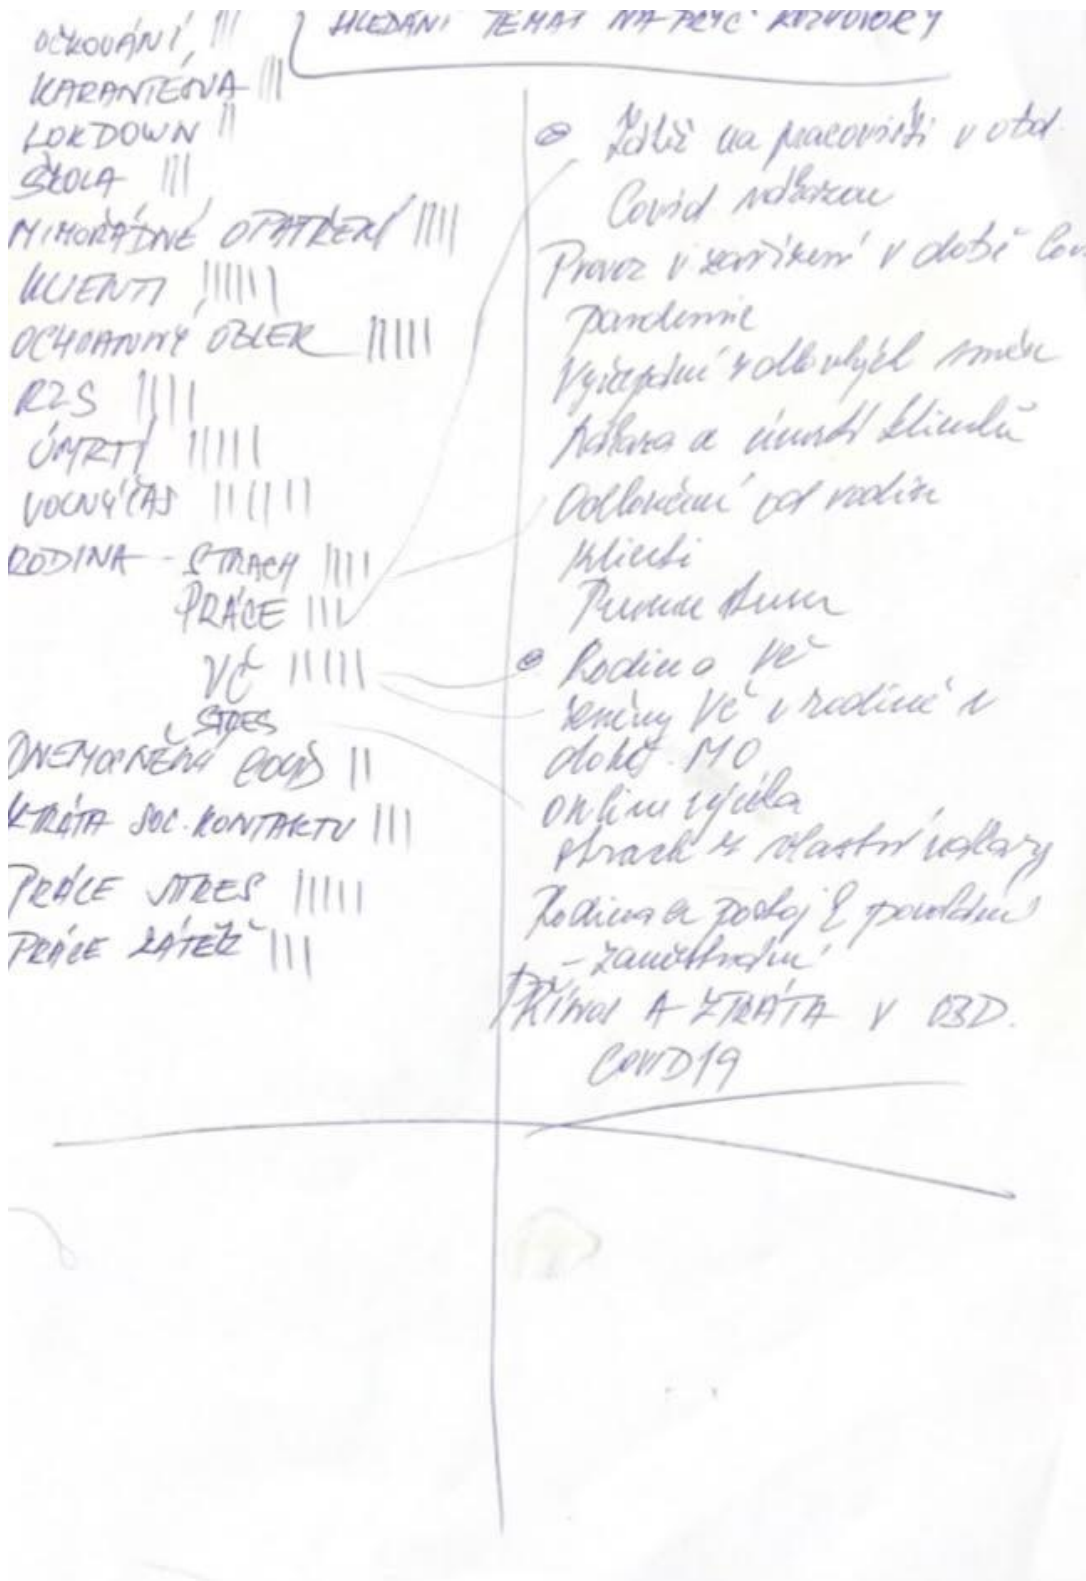 HLEDÁNÍ TÉMAT NAPŘÍČ ROZHOVORY
OČKOVÁNÍ, |||
KARANTÉNA |||
LOKDOWN ||
ŠKOLA |||
MIMOŘÁDNÉ OPATŘENÍ ||||
KLIENTI ||||||
OCHRANNÝ OBLEK |||||
RZS ||||
ÚMRTÍ |||||
VOLNÝ ČAS ||||||
RODINA - STRACH ||||
PRÁCE |||
VČ |||||
STRES
ONEMOCNĚNÍ COVID ||
ZTRÁTA SOC. KONTAKTU |||
PRÁCE STRES |||||
PRÁCE ZÁTĚŽ |||
Zátěž na pracovišti v obd.
Covid nákazou
Provoz v zařízení v době Cov
pandemie
Vyčerpání z dlouhých směn
Nákaza a úmrtí klientů
Odloučení od rodin
Klienti
Rodina VČ
změny VČ v rodině v
dobe. MO
online výuka
strach z vlastní nákazy
Rodina a postoj k povolání
- zaměstnání
PŘÍNOS A ZTRÁTA V OBD.
COVID19